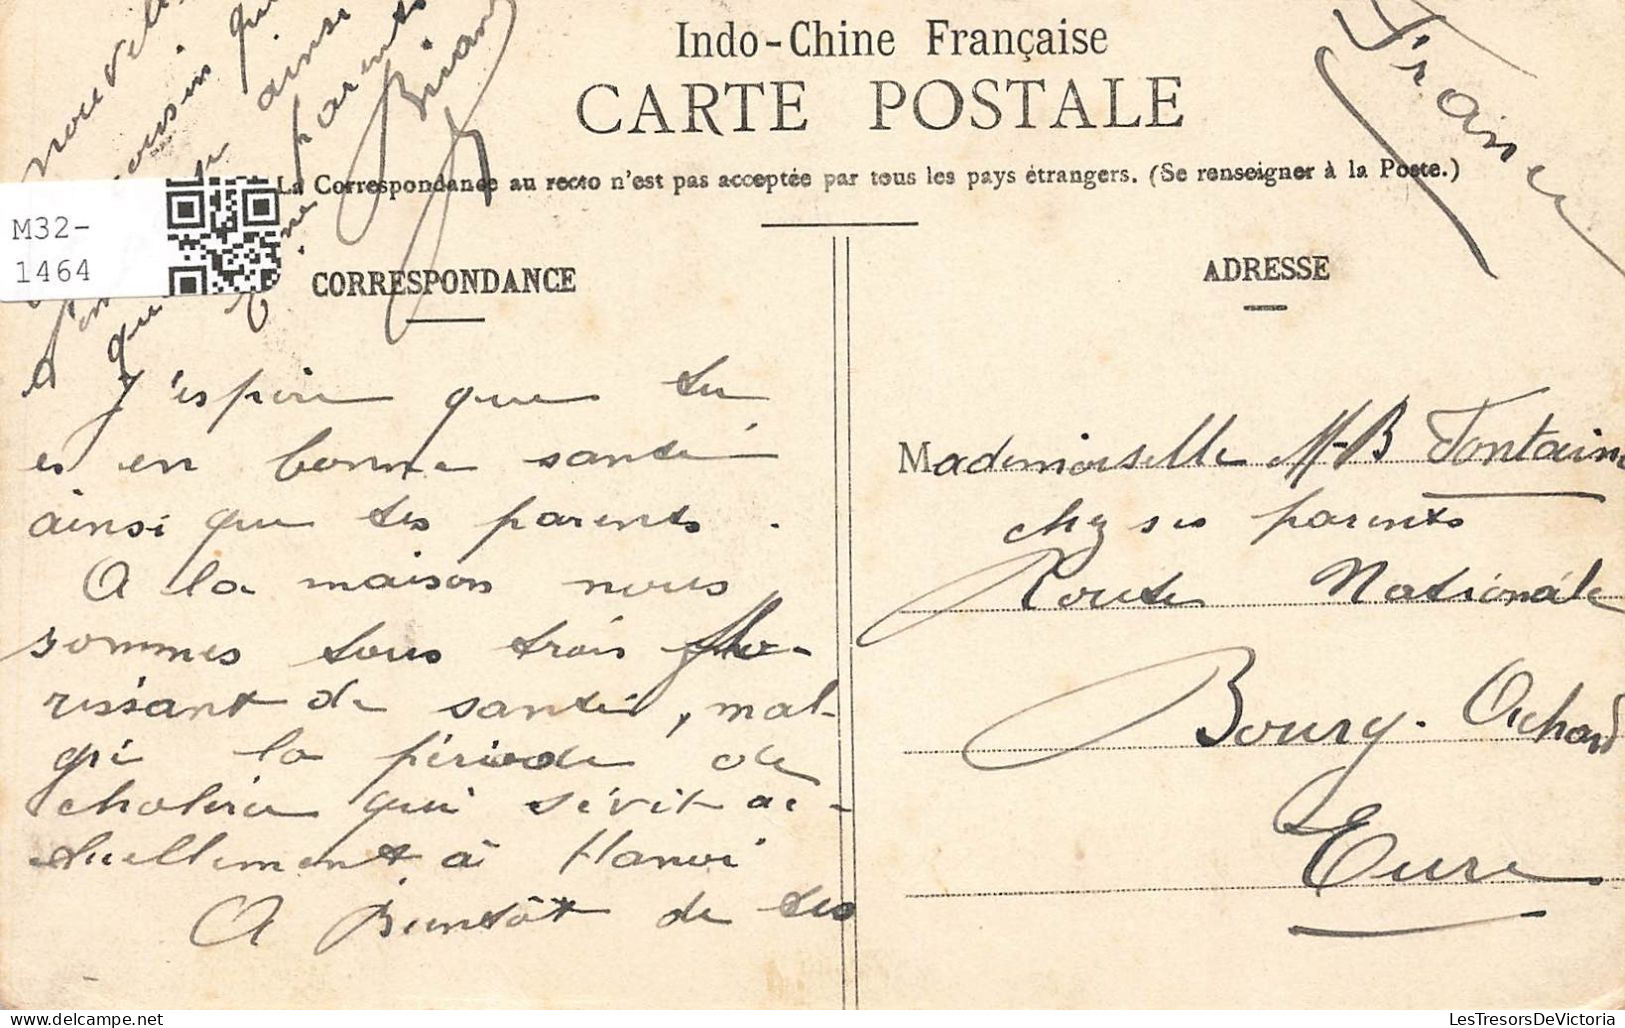 Indo-Chine Française
CARTE POSTALE
La Correspondance au recto n'est pas acceptée par tous les pays étrangers. (Se renseigner à la Poste.)
M32-
1464
CORRESPONDANCE
J'espère que tu
es en bonne santé
ainsi que tes parents.
A la maison nous
sommes tous trois flo-
rissant de santé, mal-
gré la période de
choléra qui sévit ac-
tuellement à Hanoi
A Bientôt de tes
nouvelles
cousin qui
ainsi
que
parents
Briand
ADRESSE
France
Mademoiselle M-B Fontaine
chez ses parents
Route Nationale
Bourg-Achard
Eure
LesTresorsDeVictoria
www.delcampe.net